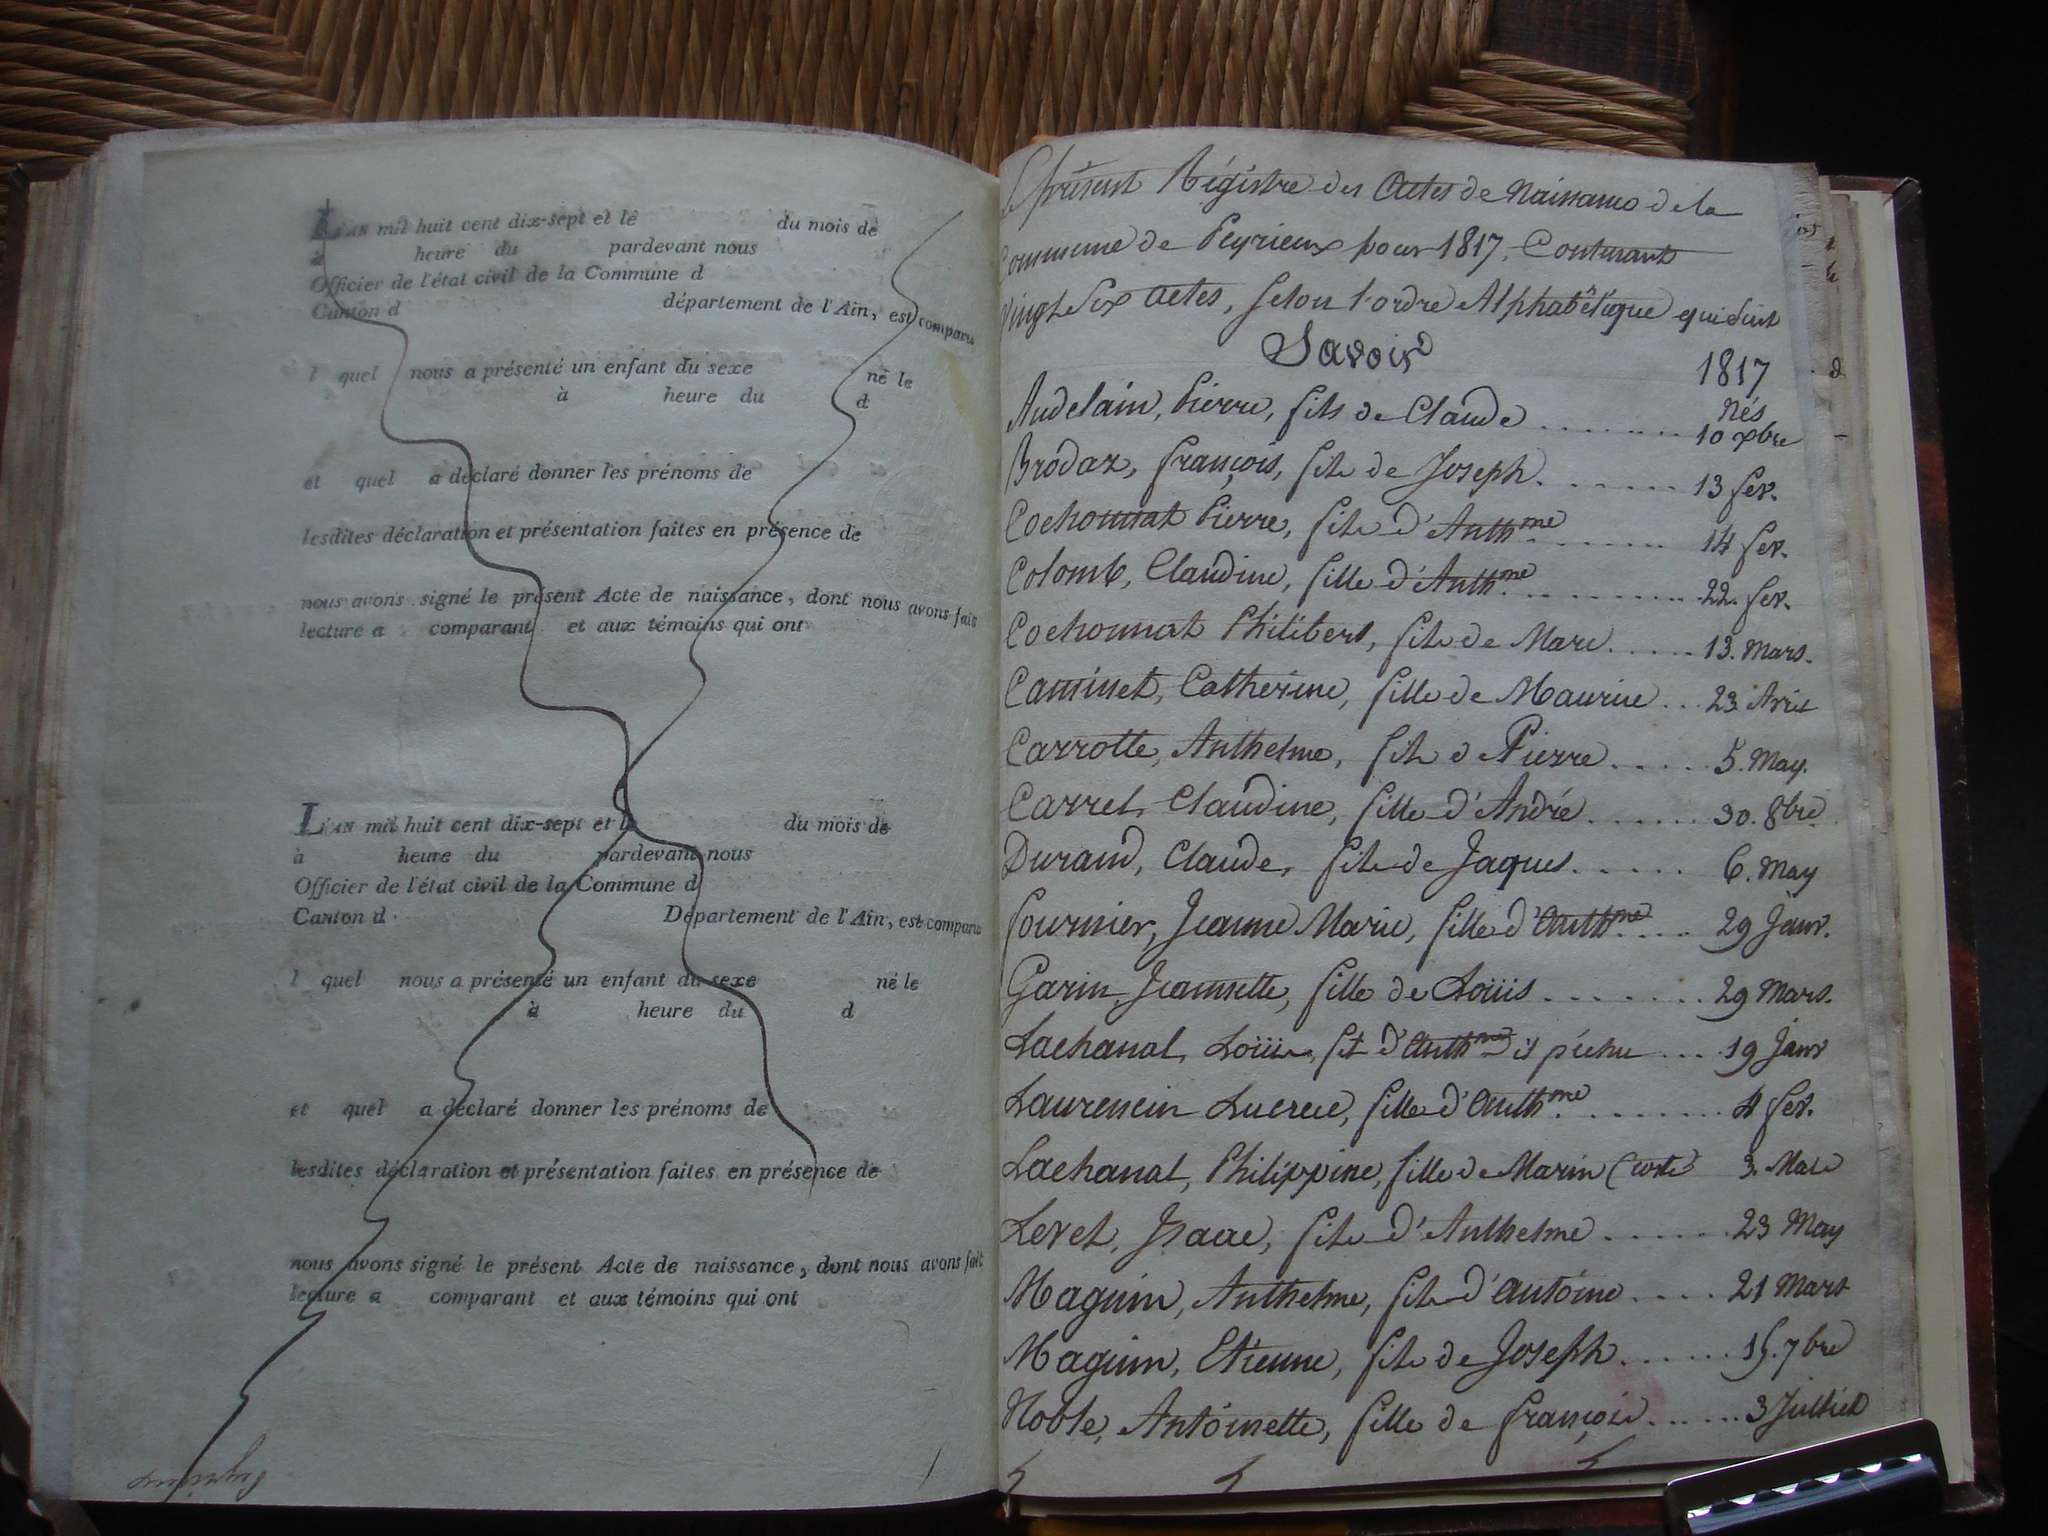 L'AN mil huit cent dix-sept et le du mois de
à heure du pardevant nous
Officier de l'état civil de la Commune d
Canton d département de l'Ain, est comparu
l quel nous a présenté un enfant du sexe né le
à heure du d
et quel a déclaré donner les prénoms de
lesdites déclaration et présentation faites en présence de
nous avons signé le présent Acte de naissance, dont nous avons fait
lecture a comparant et aux témoins qui ont
L'AN mil huit cent dix-sept et le du mois de
à heure du pardevant nous
Officier de l'état civil de la Commune d
Canton d Département de l'Ain, est comparu
l quel nous a présenté un enfant du sexe né le
à heure du d
et quel a déclaré donner les prénoms de
lesdites déclaration et présentation faites en présence de
nous avons signé le présent Acte de naissance, dont nous avons fait
lecture a comparant et aux témoins qui ont
Le présent Régistre des Actes de Naissance de la
Commune de Peyrieux pour 1817, Contenant
Vingt Six actes, Selon l'ordre Alphabétique qui suit
Savoir 1817
Nés
Audelain, Pierre, fils de Claude ........ 10 xbre
Brodaz, françois, fils de Joseph. ....... 13 fev.
Cochonnat Pierre, fils d'Anthme ........ 14 fev.
Colomb, Claudine, fille d'Anthme .......... 22. fev.
Cochonnat Philibert, fils de Marc ...... 13. Mars.
Caminet, Catherine, fille de Maurice ... 23 Avril
Carrotte, Anthelme, fils de Pierre ..... 5. May.
Carrel, Claudine, fille d'André ....... 30. 8bre
Durand, Claude, fils de Jaques ...... 6. May
fournier, Jeanne Marie, fille d'Anthme .... 29 Janv.
Garin Jeannette, fille de Loüis ........ 29 Mars.
Lachanal, Loüis, fils d'Anthme ... 19 Janv
Laurencin Lucrece, fille d'Anthme ........ 4 fev.
Lachanal, Philippine, fille de Marin 3. Mars
Levet, Isaac, fils d'Anthelme ....... 23 May
Maguin, Anthelme, fils d'antoine .... 21 Mars
Maguin, Etienne, fils de Joseph ...... 15. 7bre
Noble, Antoinette, fille de françois ...... 3 Juillet